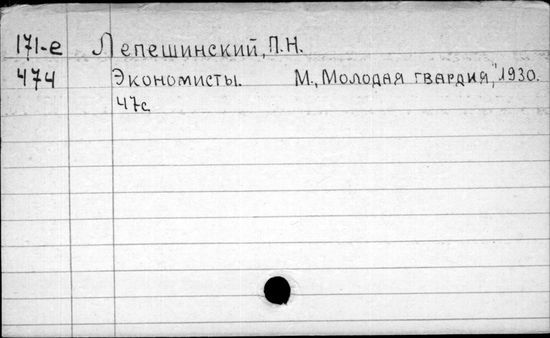 171-е Лепешинский, П.Н.
474 Экономисты. М., "Молодая гвардия," 1930.
47с